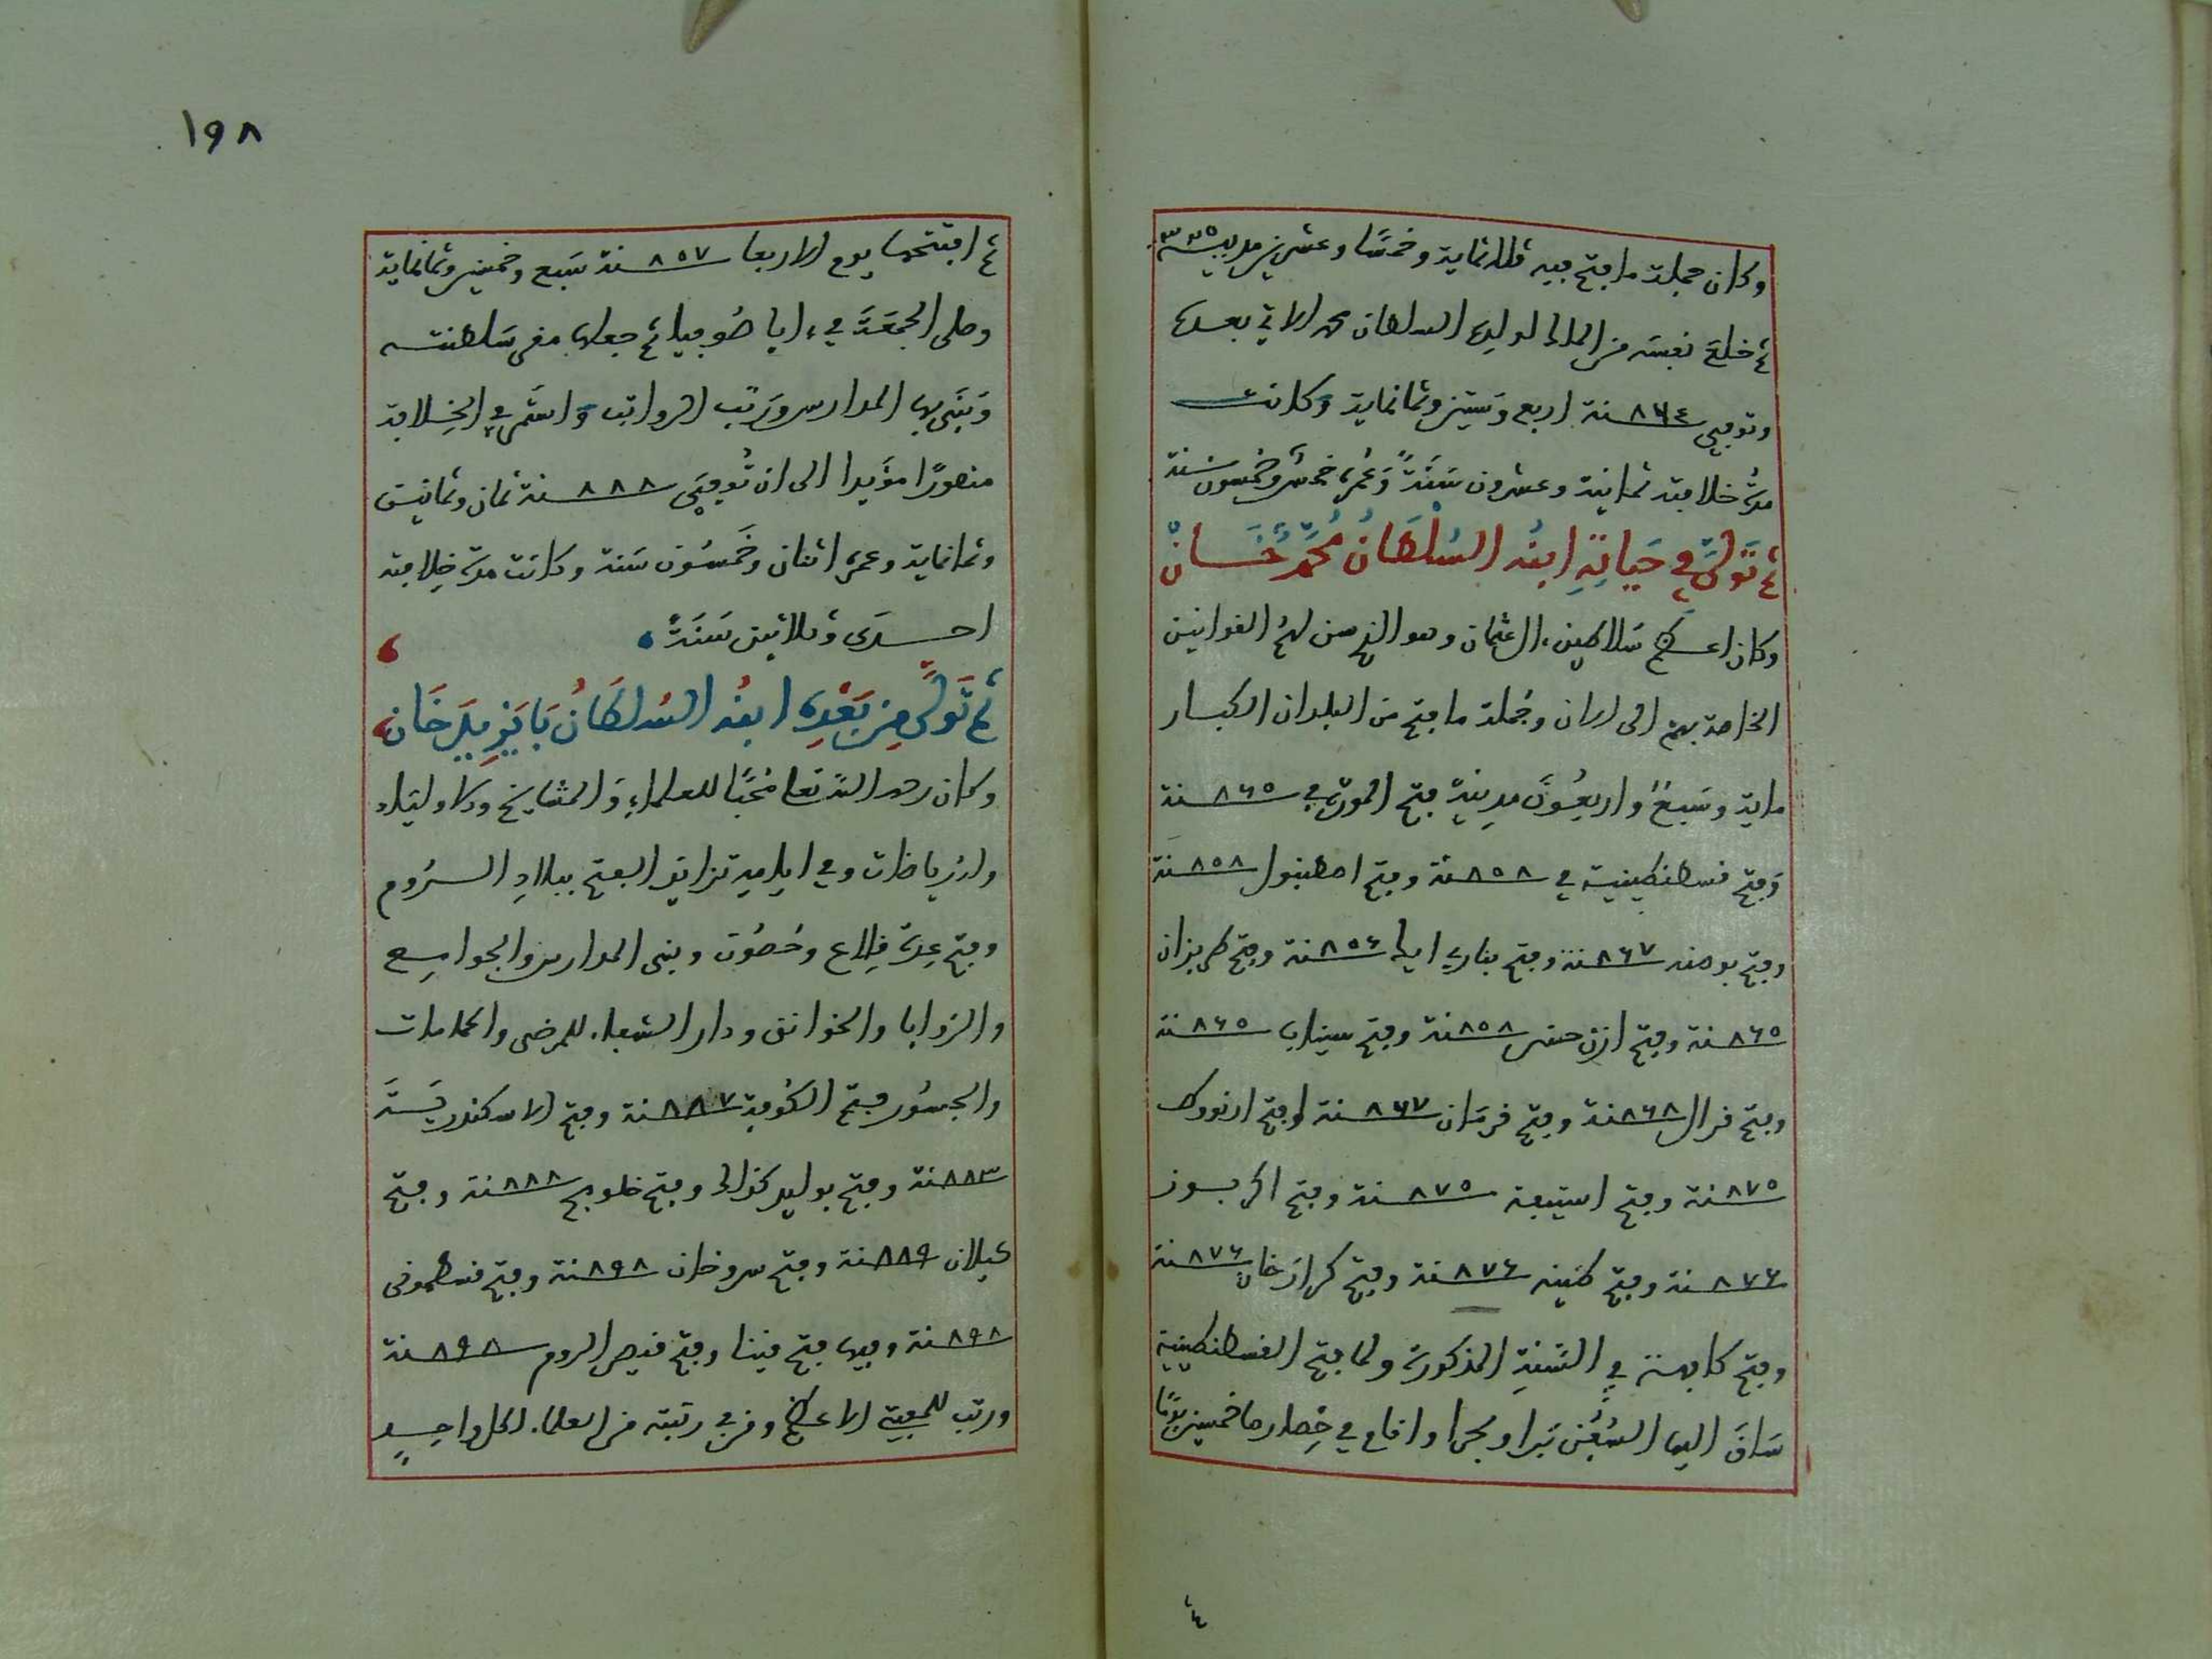 وكان جملة ما فتح فيه ثلاثماية وخمسًا وعشرين مدينة ٣٢٥
ثم خلع نفسه من الملك لولده السلطان محمد الاتي بعده
وتوفي ٨٦٤ سنة اربع وستين وثمانماية وكانت
مدة خلافته ثمانية وعشرون سَنَةً وعُمره خمسٌ وخمسون سنة
ثم تَوَلَّى في حَيَاتِهِ ابنُه السُلْطَانُ مُحَمَّد خَان
وكان اعظم سلاطين ال عثمان وهو الذي سن لهم القوانين
الخاصة بهم الى الان وجُملة ما فتح من البلدان الكبار
ماية وسَبعٌ واربعُونَ مدينة فتح المورة في ٨٦٥ سنة
وفتح قسطنطينية في ٨٥٨ سنة وفتح اصطنبول ٨٥٨ سنة
وفتح بوصنه ٨٦٧ سنة وفتح ٨٥٦ سنة وفتح طربزان
٨٦٥ سنة وفتح ٨٥٨ سنة وفتح سيناب ٨٦٥ سنة
وفتح قرال ٨٦٨ سنة وفتح قرمان ٨٦٧ سنة وفتح ارنووك
٨٧٥ سنة وفتح ٨٧٥ سنة وفتح اكربوز
٨٧٦ سنة وفتح ٨٧٦ سنة وفتح ٨٧٦ سنة
وفتح في السَّنَةِ المذكورة ولما فتح القسطنطينية
سَاقَ اليها السُفُن بَرا وبحرا واقام في حِصارها خمسين يومًا
ثم
١٩٨
ثم افتتحها يوم الاربعا ٨٥٧ سنة سَبع وخمسين وثمانماية
وصلى الجمعَة في ايا صُوفيا ثم جعلها مقر سَلطنته
وَبَنَى بها المدارس ورَتب الرواتب واستمر في الخِلافة
منصورًا مؤيدا الى ان تُوفي ٨٨٨ سنة ثمان وثمانين
وثمانماية وعمره اثنان وخَمسُون سَنة وكانت مدة خِلافته
احدَى وثلاثين سَنَةً
ثم تَوَلَّى مِن بَعْدِهِ ابنُه السُلطَانُ بَايَزِيد خَان
وكان رحمه الله تعا مُحبًا للعلماءِ وَالمشايخ والاولياء
وله رياضات وفي ايامه تزايد الفتح ببلادِ الرُوم
وفتح عِدة قِلاع وحُصُون وبنى المدارس والجوامِع
والزوايا والخوانق ودار الشفاء للمرضى والحمامات
والجسُور فتح الكُوفة ٨٨٧ سنة وفتح الاسكندريَّة
٨٨٣ سنة وفتح وفتح ٨٨٨ سنة وفتح
كيلان ٨٨٩ سنة وفتح سروخان ٨٩٨ سنة وفتح قسطموني
٨٩٨ سنة وفيها فتح وفتح قيصر الروم ٨٩٨ سنة
ورتب للمفتي الاعظم ومن في رتبته من العلماء لكل واحِدٍ